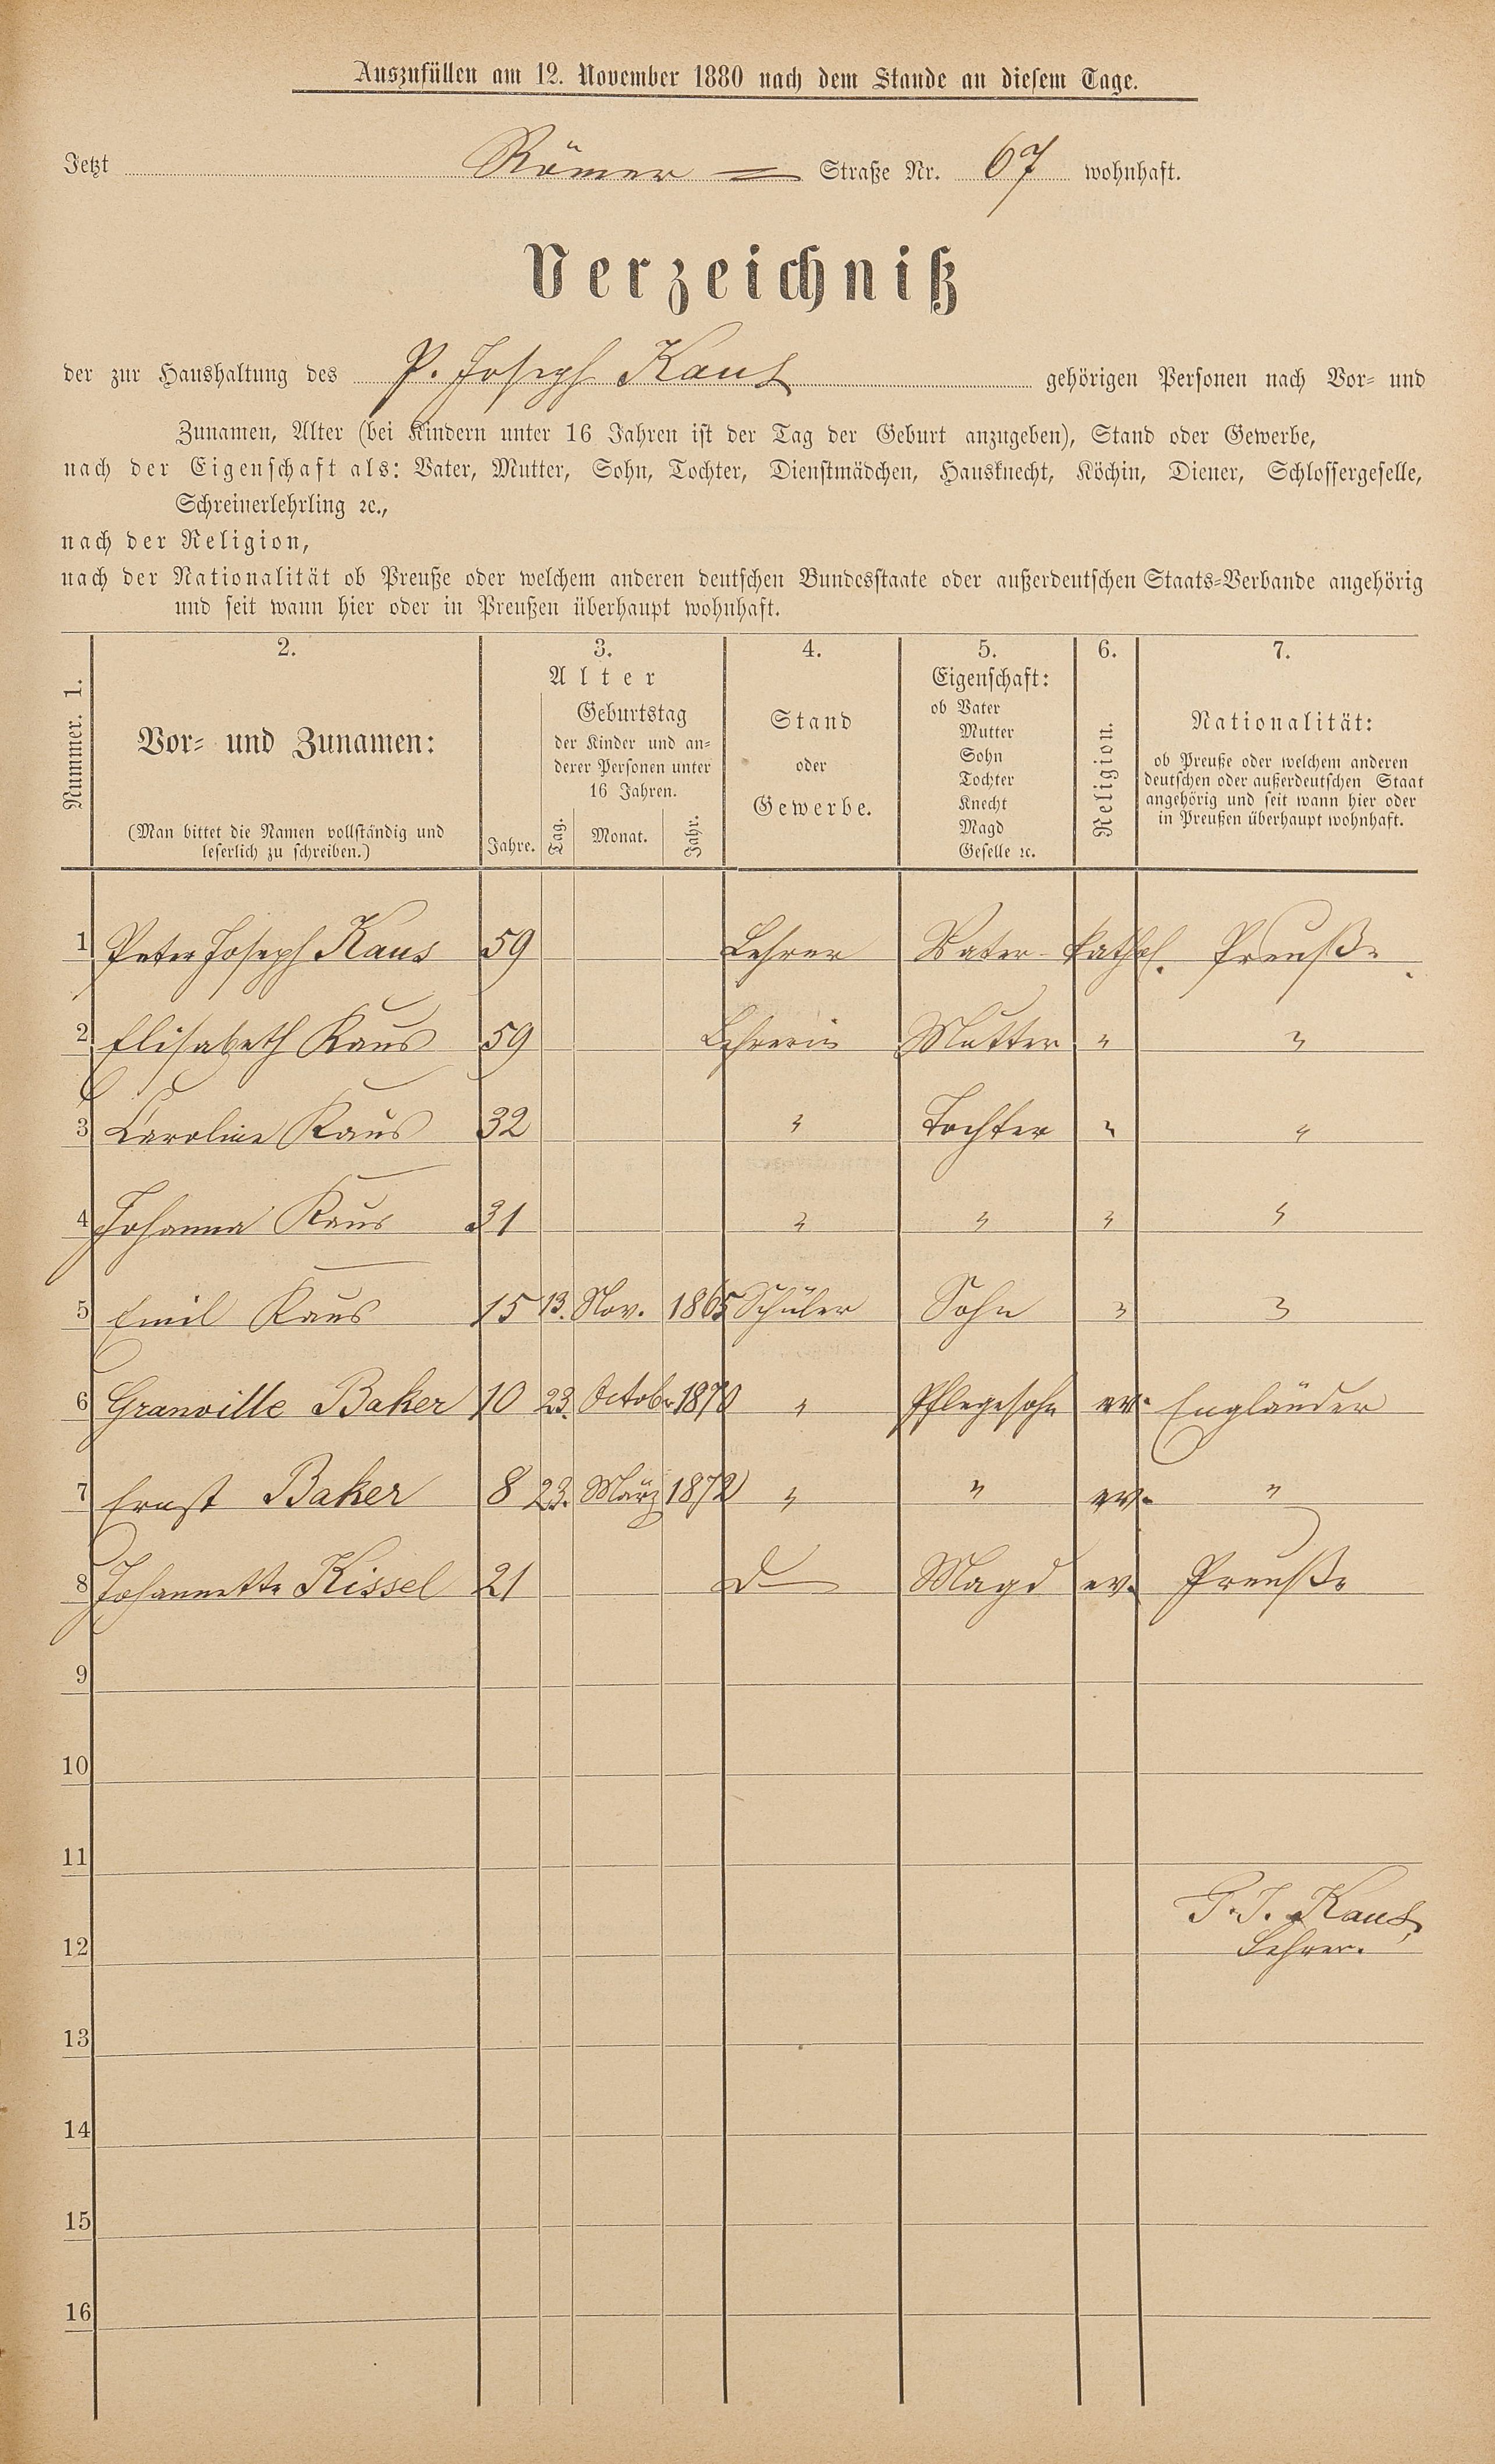 Auszufüllen am 12. November 1880 nach dem Stande an diesem Tage.
Jetzt Römer = Straße Nr. 67 wohnhaft.
Verzeichniß
der zur Haushaltung des P. Joseph Kaus gehörigen Personen nach Vor- und
Zunamen, Alter (bei Kindern unter 16 Jahren ist der Tag der Geburt anzugeben), Stand oder Gewerbe,
nach der Eigenschaft als: Vater, Mutter, Sohn, Tochter, Dienstmädchen, Hausknecht, Köchin, Diener, Schlossergeselle,
Schreinerlehrling ꝛc.,
nach der Religion,
nach der Nationalität ob Preuße oder welchem anderen deutschen Bundesstaate oder außerdeutschen Staats-Verbande angehörig
und seit wann hier oder in Preußen überhaupt wohnhaft.
Nummer. 1.
2.
Vor- und Zunamen:
(Man bittet die Namen vollständig und
leserlich zu schreiben.)
3.
Alter
Jahre.
Geburtstag
der Kinder und an-
derer Personen unter
16 Jahren.
Tag. Monat. Jahr.
4.
Stand
oder
Gewerbe.
5.
Eigenschaft:
ob Vater
Mutter
Sohn
Tochter
Knecht
Magd
Geselle ꝛc.
6.
Religion.
7.
Nationalität:
ob Preuße oder welchem anderen
deutschen oder außerdeutschen Staat
angehörig und seit wann hier oder
in Preußen überhaupt wohnhaft.
1 Peter Joseph Kaus 59 Lehrer Vater kathol. Preuße
2 Elisabeth Kaus 59 Lehrerin Mutter " "
3 Caroline Kaus 32 " Tochter " "
4 Johanna Kaus 31 " " " "
5 Emil Kaus 15 13. Nov. 1865 Schüler Sohn " "
6 Granville Baker 10 23. Octobr 1870 " Pflegesohn ev. Engländer
7 Ernst Baker 8 23. März 1872 " " ev. "
8 Johannette Kissel 21 Magd ev. Preuße
9
10
11
P. J. Kaus,
12 Lehrer.
13
14
15
16